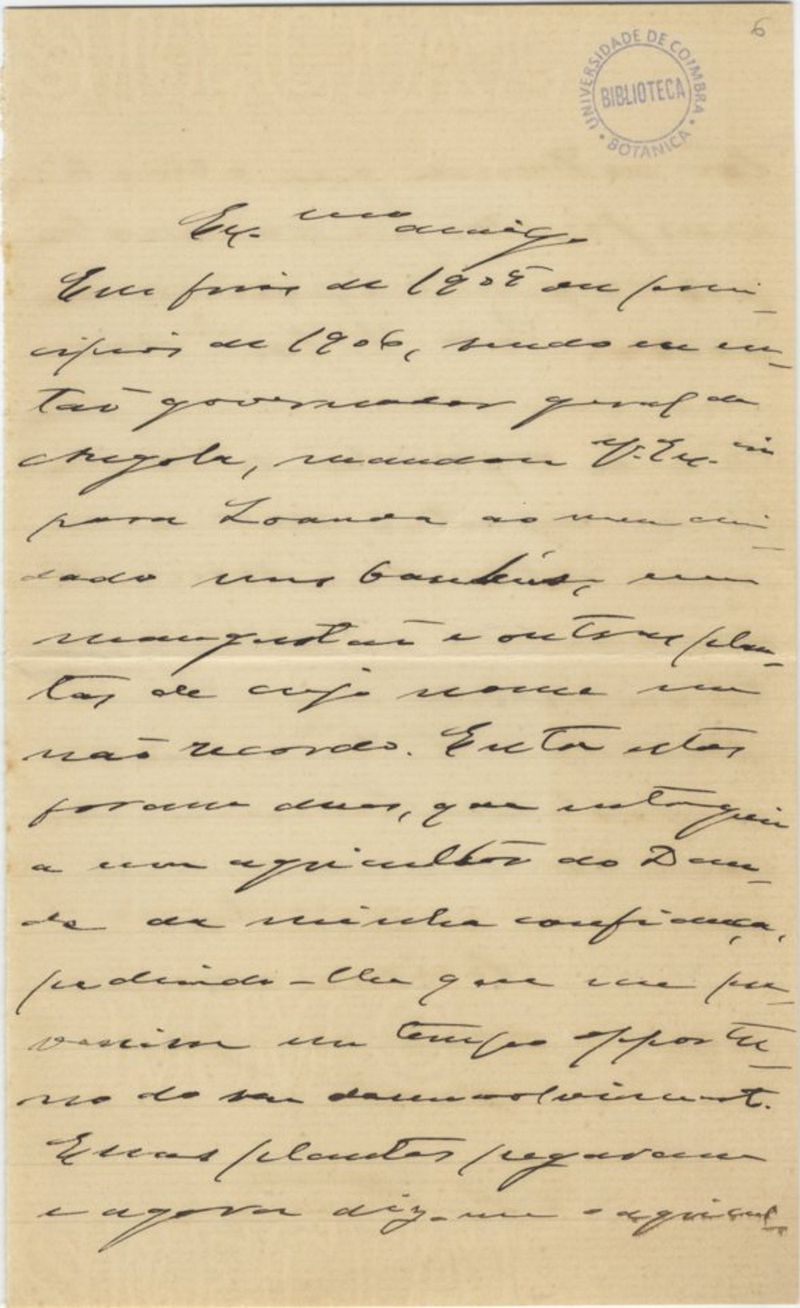 6
UNIVERSIDADE DE COIMBRA
BIBLIOTECA
BOTANICA
Ex.mo amigo
Em fins de 1905 ou prin-
cipios de 1906, sendo eu en-
tão governador geral de
Angola, mandou V. Ex.cia
para Loanda ao meu cui-
dado uns bambús, um
mangustão e outras plan-
tas de cujo nome me
não recordo. Entre estas
foram duas, que entreguei
a um agricultor do Dan-
de da minha confiança,
pedindo-lhe que me pre-
venisse em tempo opportu-
no do seu desenvolvimento.
Essas plantas pegaram
e agora diz-me o agricul